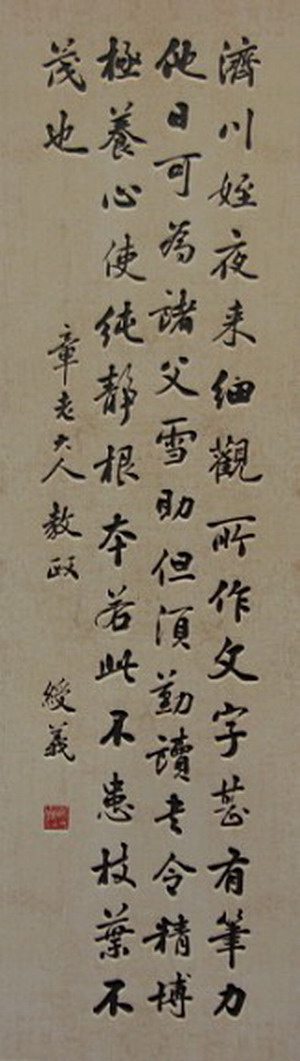 濟川姪夜来細觀所作文字甚有筆力
他日可為諸父雪助但須勤讀书令精博
極養心使純靜根本若此不患枝葉不
茂也
章老大人教政
綬義